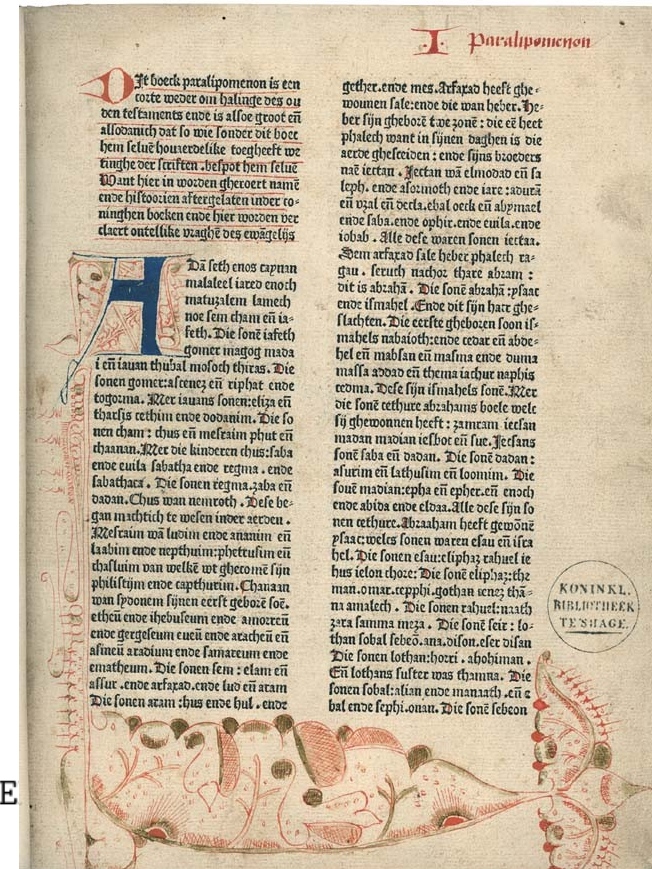 I Paralipomenon
Dit boeck paralipomenon is een
corte weder om halinge des ou
den testaments ende is alsoe groot eñ
alsodanich dat so wie sonder dit boec
hem seluē houaerdelike toegheeft we
tinghe der scriften .bespot hem seluē
Want hier in worden gheroert namē
ende histoorien aftergelaten inder co-
ninghen boeken ende hier worden ver
claert ontellike vraghē des ewāgelijs
ADā seth enos caynan
malaleel iared enoch
matuzalem lamech
noe sem cham eñ ia-
feth. Die sonē iafeth
gomer magog mada
i eñ iauan thubal mosoch thiras. Die
sonen gomer:ascenez eñ riphat ende
togorma. Mer iauans sonen:eliza eñ
tharsis cethim ende dodanim. Die so
nen cham : chus eñ mesraim phut eñ
chaanan. Mer die kinderen chus:saba
ende euila sabatha ende regma . ende
sabathaca . Die sonen regma.zaba eñ
dadan. Chus wan nemroth . Dese be-
gan machtich te wesen inder aerden .
Mesraim wā ludim ende ananim eñ
laabim ende nepthuim:phetrusim eñ
chasluim van welkē wt ghecomē sijn
philistijm ende capthurim. Chanaan
wan sydonem sijnen eerst geborē soē.
etheū ende ihebuseum ende amorreū
ende gergeseum eueū ende aracheū eñ
asineū aradium ende samareum ende
ematheum. Die sonen sem : elam eñ
assur .ende arfaxad.ende lud eñ aram
Die sonen aram :hus ende hul . ende
gether.ende mes.Arfaxad heeft ghe-
wonnen sale:ende die wan heber. He-
ber sijn gheborē twe zonē : die eē heet
phalech want in sijnen daghen is die
aerde ghesceiden : ende sijns broeders
naē iectan . Jectan wā elmodad eñ sa
leph. ende asormoth ende iare :adurā
eñ vzal eñ decla.ebal oeck eñ abymael
ende saba.ende ophir.ende euila.ende
iobab . Alle dese waren sonen iectaā.
Sem arfaxad sale heber phalech ra-
gau . seruch nachor thare abram :
dit is abrahā . Die sonē abrahā :ysaac
ende ismahel .Ende dit sijn haer ghe-
slachten. Die eerste gheboren soon is-
mahels nabaioth:ende cedar eñ abde-
hel eñ mabsan eñ masma ende duma
massa addad eñ thema iachur naphis
cedma. Dese sijn ismahels sonē.Mer
die sonē cethure abrahams boele welc
sij ghewonnen heeft : zamram iecsan
madan madian iesbot eñ sue. Jecsans
sonē saba eñ dadan. Die sonē dadan :
asurim eñ lathusim eñ loomim. Die
sonē madian:epha eñ epher.eñ enoch
ende abida ende eldaa.Alle dese sijn so
nen cethure.Abraaham heeft gewōnē
ysaac:welcs sonen waren esau eñ isra
hel. Die sonen esau:eliphaz rahuel ie
hus ielon chore: Die sonē eliphaz:the
man.omar.cepphi.gothan cenez thā-
na amalech . Die sonen rahuel:naath
zara samma meza . Die sonē seir : lo-
than sobal sebeō.ana.dison.eser disan
Die sonen lothan:horri . ahohiman .
Eñ lothans suster was thamna. Die
sonen sobal:alian ende manaath .eñ e
bal ende sephi.onan. Die sonē sebeon
KONINKL.
BIBLIOTHEEK
TE'SHAGE.
E